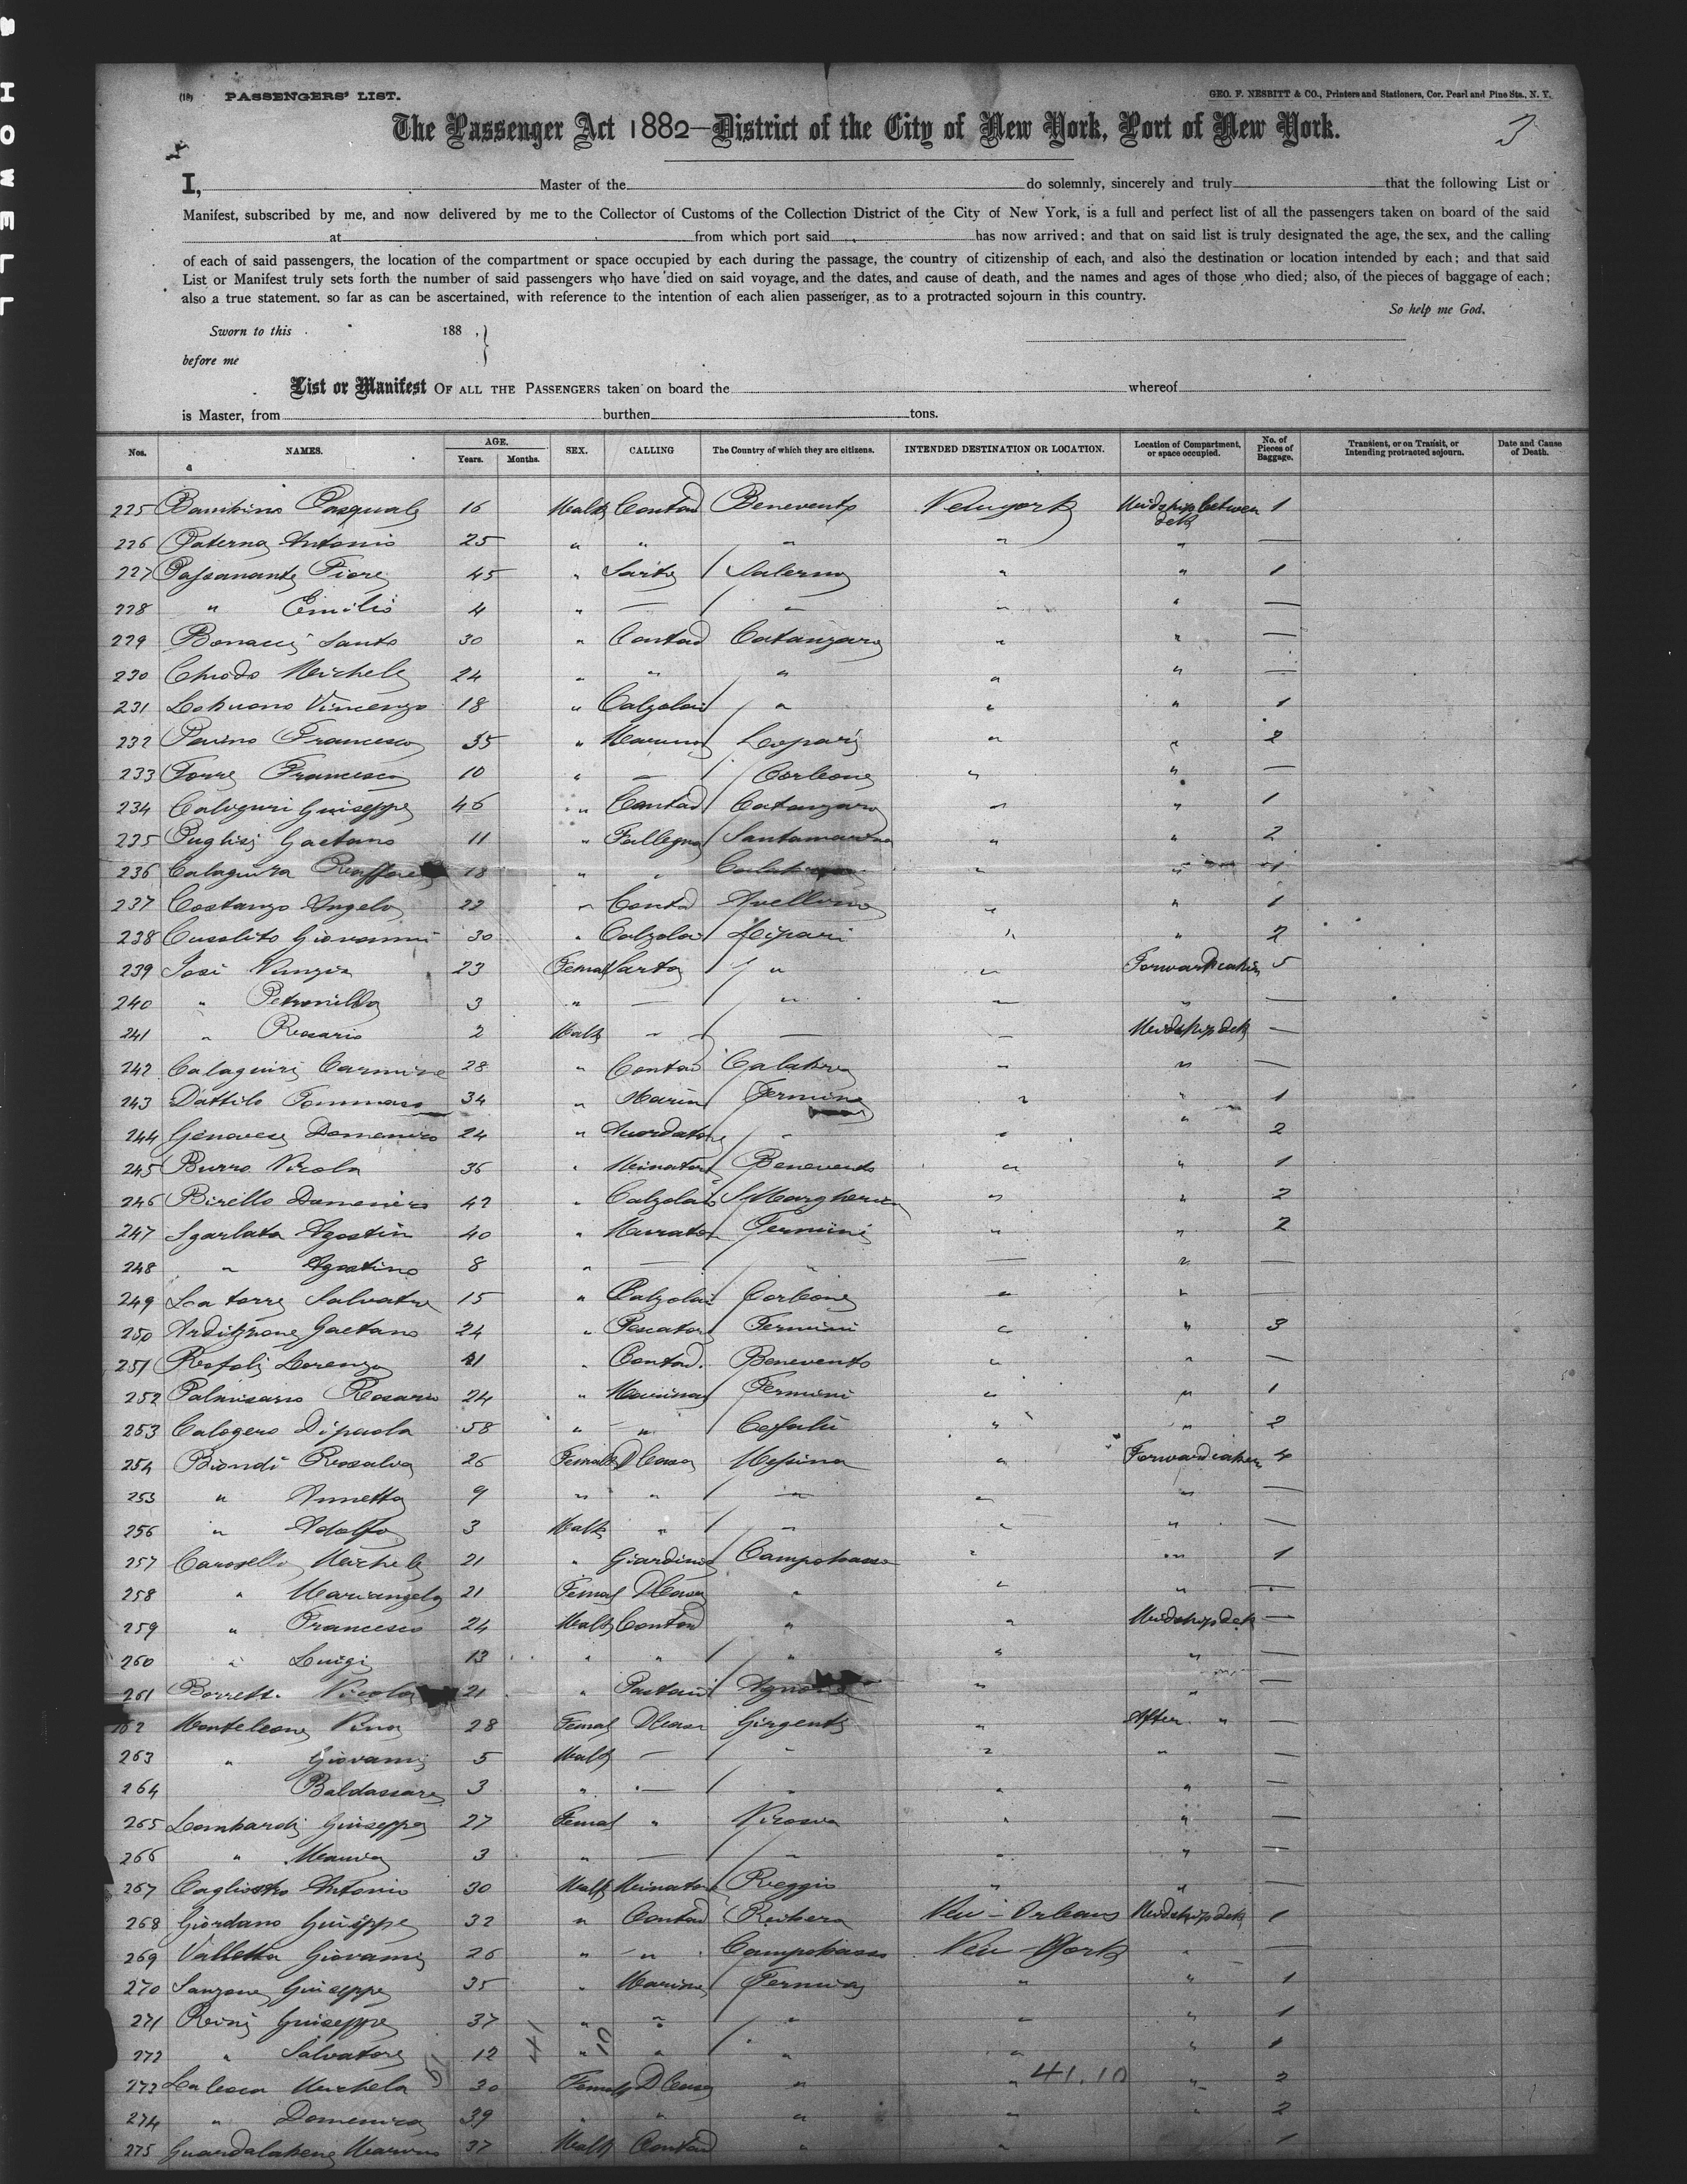 HOWELL
(18) PASSENGERS' LIST. GEO. F. NESBITT & CO., Printers and Stationers, Cor. Pearl and Pine Sts., N. Y.
The Passenger Act 1882—District of the City of New York, Port of New York. 3
I, Master of the do solemnly, sincerely and truly that the following List or
Manifest, subscribed by me, and now delivered by me to the Collector of Customs of the Collection District of the City of New York, is a full and perfect list of all the passengers taken on board of the said
at from which port said has now arrived; and that on said list is truly designated the age, the sex, and the calling
of each of said passengers, the location of the compartment or space occupied by each during the passage, the country of citizenship of each, and also the destination or location intended by each; and that said
List or Manifest truly sets forth the number of said passengers who have died on said voyage, and the dates, and cause of death, and the names and ages of those who died; also, of the pieces of baggage of each;
also a true statement. so far as can be ascertained, with reference to the intention of each alien passenger, as to a protracted sojourn in this country.
So help me God.
Sworn to this 188
before me
List or Manifest OF ALL THE PASSENGERS taken on board the whereof
is Master, from burthen tons.
Nos. NAMES. AGE. Years. Months. SEX. CALLING The Country of which they are citizens. INTENDED DESTINATION OR LOCATION. Location of Compartment, or space occupied. No. of Pieces of Baggage. Transient, or on Transit, or Intending protracted sojourn. Date and Cause of Death.
225 Bambino Pasquale 16 Male Contad Benevento Newyork Midship between 1
deck
226 Paterno Antonio 25 " " " " " —
227 Passanante Fiore 45 " Sarto Salerno " " 1
228 " Emilio 4 " — " " " —
229 Bonacci Santo 30 " Contad Catanzaro " " —
230 Chiodo Michele 24 " " " " " —
231 Vincenzo 18 " Calzolai " " " 1
232 Francesco 35 " Lipari " " 2
233 Torre Francesco 10 " — Corleone " " —
234 Caligiuri Giuseppe 46 " Contad Catanzaro " " 1
235 Puglisi Gaetano 11 " " " 2
236 18 " " " " 1
237 Costanzo Angelo 22 " Contad Avellino " " 1
238 Cusolito Giovanni 30 " Calzolai Lipari " " 2
239 Nunzia 23 Femal Sarta " " Forward cabin 5
240 " Petronilla 3 " — " — " —
241 " Rosario 2 Male " — — Midship deck —
242 Carmine 28 " Contad " " —
243 Dattilo Tommaso 34 " Marin Termini " " 1
244 Genovese Domenico 24 " " " " 2
245 Burro Nicola 36 " Minatore Benevento " " 1
246 Birello Domenico 42 " Calzolaio S Margherita " " 2
247 Sgarlata Agostin 40 " Termini " " 2
248 " Agostino 8 " — " — " —
249 La torre Salvatore 15 " Calzolai Corleone " " —
250 Ardizzone Gaetano 24 " Pescatore Termini " " 3
251 Lorenzo 21 " Contad. Benevento " " —
252 Palmisano Rosario 24 " Marinaro Termini " " 1
253 Calogero Dipaola 58 " " Cefalù " " 2
254 Biondi Rosalia 26 Female D Casa Messina " Forward cabin 4
253 " Annetta 9 " " " " " —
256 " Adolfo 3 Male " " " " —
257 Carosella Michele 21 " Giardinie Campobasso " " 1
258 " Mariangela 21 Femal D Casa " " " —
259 " Francesco 24 Male Contad " " Midship deck —
260 " Luigi 13 " " " " " —
261 Nicola 21 " Agnone " " —
262 Monteleone 28 Femal D Casa Girgenti " After " —
263 " Giovanni 5 Male — " " " —
264 Baldassare 3 " — " " " —
265 Lombardi Giuseppa 27 Femal " Nicosia " " —
266 " 3 " — " " " —
267 Cagliostro Antonio 30 Male Minatore Reggio " " —
268 Giordano Giuseppe 32 " Contad Ribera New-Orleans Midship deck 1
269 Valletta Giovanni 26 " " Campobasso New-York " —
270 Sanzone Giuseppe 35 " Marina " " 1
271 Giuseppe 37 " " " " " 1
272 " Salvatore 12 " " " " " 1
273 Michela 30 Female D Casa " " " 2
274 " Domenica 39 " " " " " 2
275 37 Male Contad " " 1
51 41 10 41.10